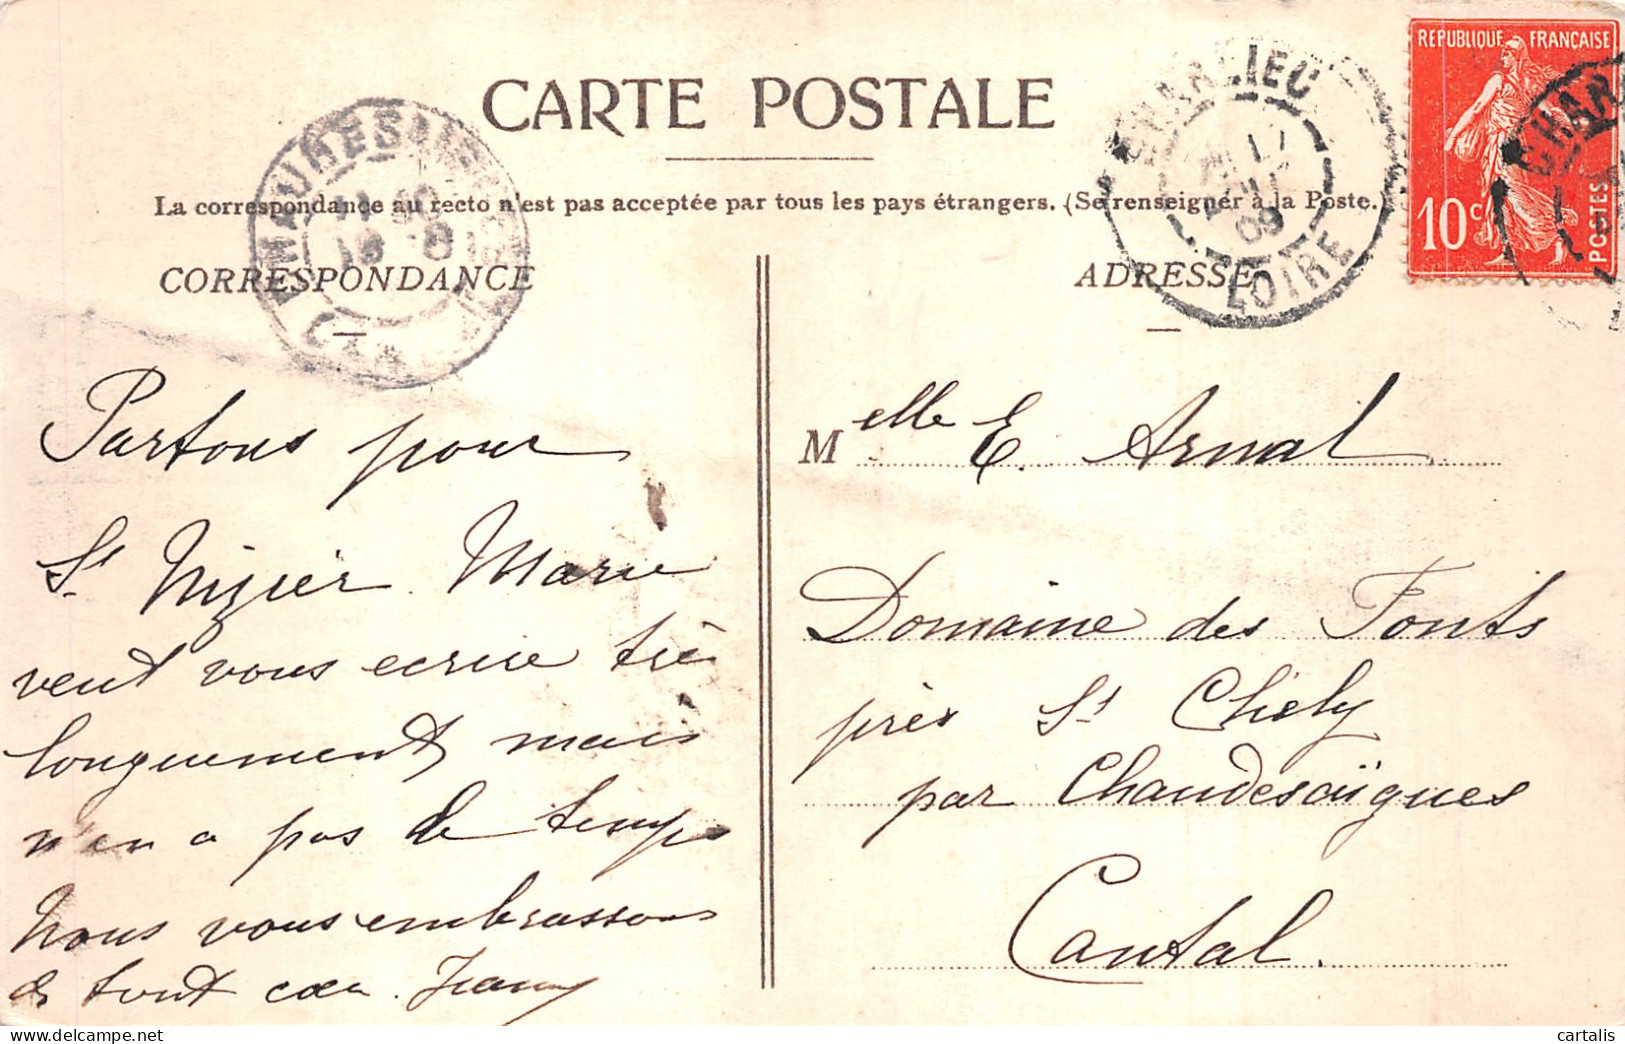 CARTE POSTALE
La correspondance au recto n'est pas acceptée par tous les pays étrangers. (Se renseigner à la Poste.)
CORRESPONDANCE
Partons pour
St Nizier. Marie
veut vous ecrire très
longuement mais
n'en a pas le temps
Nous vous embrassons
de tout cœur.
ADRESSE
Melle E. Arnal
Domaine des Fonts
près St Chély
par Chaudesaïgues
Cantal.
REPUBLIQUE FRANÇAISE
10 c
POSTES
CHARLIEU
09
LOIRE
CHAR
cartalis